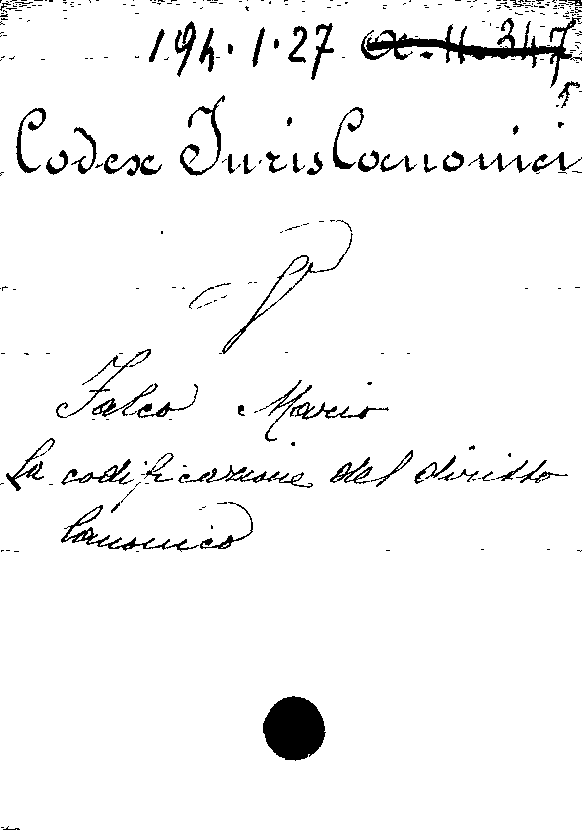 194.1.27 a.H.347
5
Codex Juris Canonici
Falco Mario
La codificazione del diritto
Canonico